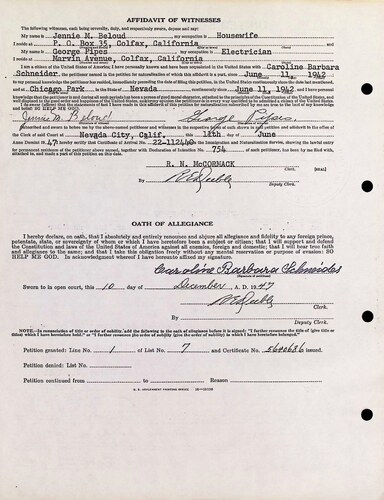 AFFIDAVIT OF WITNESSES
The following witnesses, each being severally, duly, and respectively sworn, depose and say:
My name is Jennie M. Beloud, my occupation is Housewife
I reside at P. O. Box 35, Colfax, California
My name is George Pipes, my occupation is Electrician
I reside at Marvin Avenue, Colfax, California
I am a citizen of the United States of America; I have personally known and have been acquainted in the United States with Caroline Barbara
Schneider, the petitioner named in the petition for naturalization of which this affidavit is a part, since June 11, 1942
to my personal knowledge the petitioner has resided, immediately preceding the date of filing this petition, in the United States continuously since the date last mentioned,
and at Chicago Park, in Nevada continuously since June 11, 1942 and I have personal
knowledge that the petitioner is and during all such periods has been a person of good moral character, attached to the principles of the Constitution of the United States, and
well disposed to the good order and happiness of the United States, and in my opinion the petitioner is in every way qualified to be admitted a citizen of the United States.
I do swear (affirm) that the statements of fact I have made in this affidavit of this petition for naturalization subscribed by me are true to the best of my knowledge
and belief: SO HELP ME GOD.
Jennie M. Beloud George Pipes
Subscribed and sworn to before me by the above-named petitioner and witnesses in the respective forms of oath shown in said petition and affidavit in the office of
the Clerk of said Court at Nevada City, Calif. this 18th day of June
Anno Domini 19 47 I hereby certify that Certificate of Arrival No. 22-112440 from the Immigration and Naturalization Service, showing the lawful entry
for permanent residence of the petitioner above named, together with Declaration of Intention No. 754 of such petitioner, has been by me filed with,
attached to, and made a part of this petition on this date.
R. N. McCORMACK
Clerk. [SEAL]
By
Deputy Clerk.
OATH OF ALLEGIANCE
I hereby declare, on oath, that I absolutely and entirely renounce and abjure all allegiance and fidelity to any foreign prince,
potentate, state, or sovereignty of whom or which I have heretofore been a subject or citizen; that I will support and defend
the Constitution and laws of the United States of America against all enemies, foreign and domestic; that I will bear true faith
and allegiance to the same; and that I take this obligation freely without any mental reservation or purpose of evasion: SO
HELP ME GOD. In acknowledgment whereof I have hereunto affixed my signature.
Caroline Barbara Schneider
Sworn to in open court, this 10 day of December, A. D. 1947
Clerk.
By
Deputy Clerk.
NOTE.—In renunciation of title or order of nobility, add the following to the oath of allegiance before it is signed: "I further renounce the title of (give title or
titles) which I have heretofore held," or "I further renounce the order of nobility (give the order of nobility) to which I have heretofore belonged."
Petition granted: Line No. 1 of List No. 7 and Certificate No. 5640636 issued.
Petition denied: List No.
Petition continued from to Reason
U. S. GOVERNMENT PRINTING OFFICE